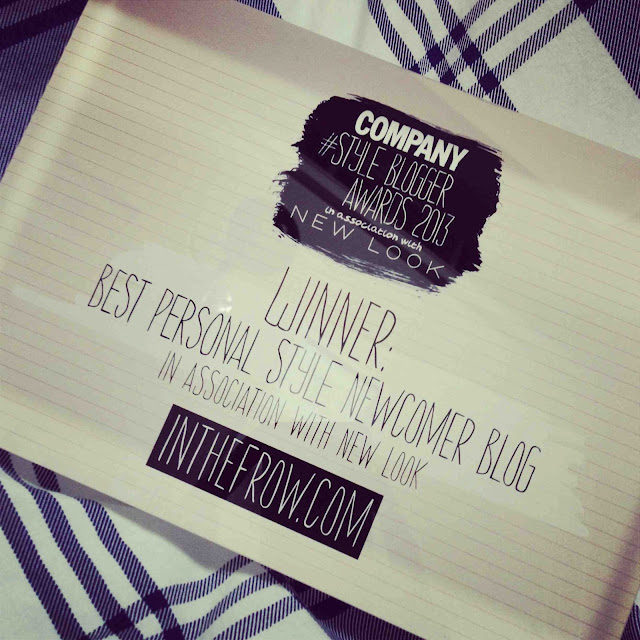 COMPANY
#STYLE BLOGGER
AWARDS 2013
in association with
NEW LOOK
WINNER:
BEST PERSONAL STYLE NEWCOMER BLOG
IN ASSOCIATION WITH NEW LOOK
INTHEFROW.COM